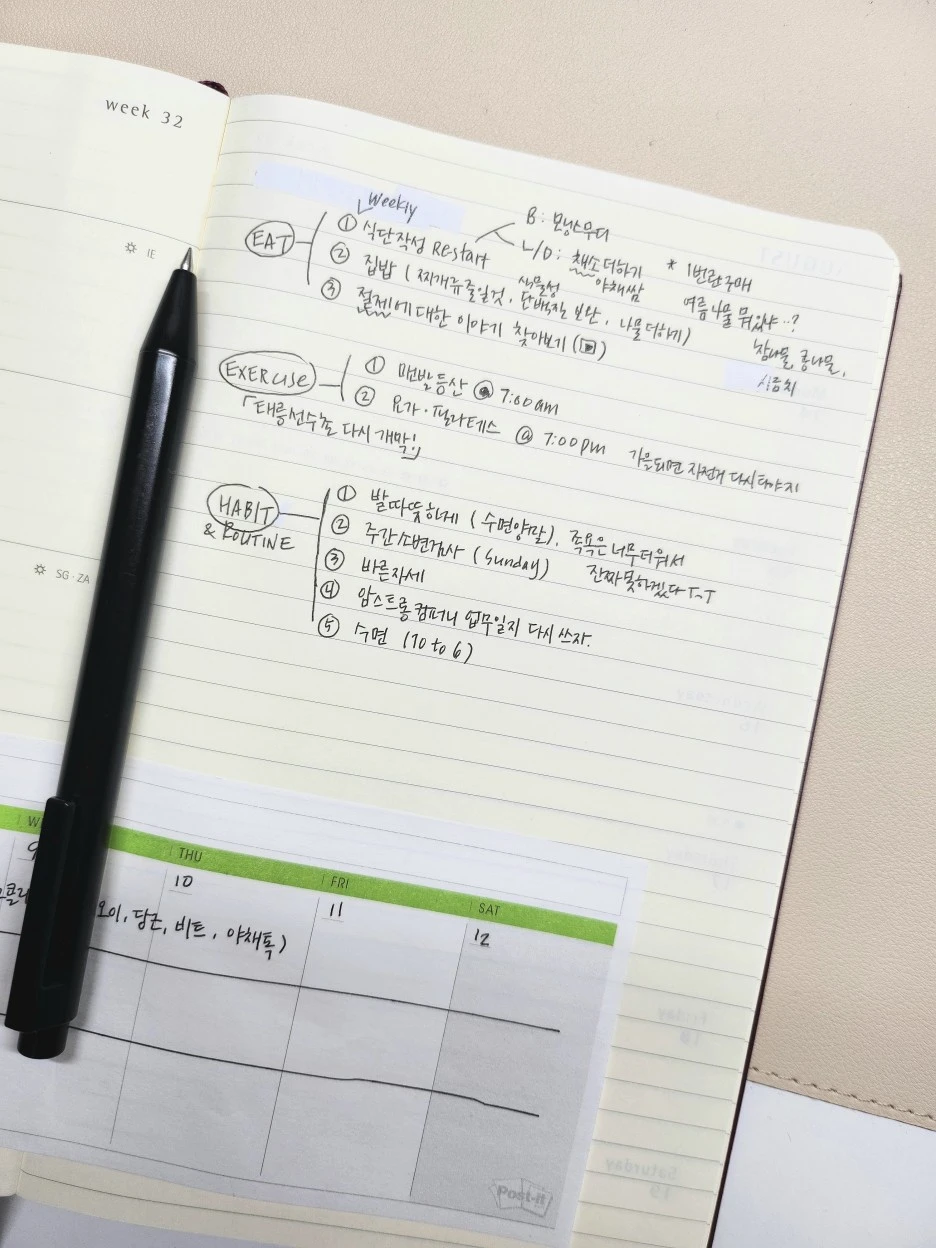 week 32
IE
SG·ZA
Weekly
EAT
① 식단작성 Restart
B: 모닝스무디
L/D: 채소더하기
야채쌈
* 1번란구매
여름나물 뭐있냐..?
참나물, 콩나물,
시금치
② 집밥 (찌개류줄일것, 식물성 단백질 보완, 나물더하기)
③ 절제에 대한 이야기 찾아보기 (▶)
EXERCISE
① 맨발등산 @ 7:00am
② 요가·필라테스 @ 7:00pm
가을되면 자전거 다시타야지
「태릉선수촌 다시 개막!」
HABIT
& ROUTINE
① 발따뜻하게 (수면양말), 족욕은 너무더워서
진짜못하겠다 ToT
② 주간소변검사 (Sunday)
③ 바른자세
④ 암스트롱컴퍼니 업무일지 다시 쓰자.
⑤ 수면 (10 to 6)
THU
FRI
SAT
10
11
12
오이, 당근, 비트, 야채톡)
Post-it
Friday
18
Saturday
19